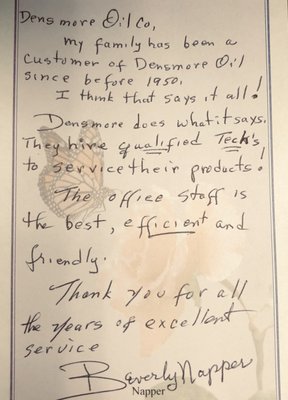 Densmore Oil Co,
my family has been a
customer of Densmore Oil
since before 1950.
I think that says it all!
Densmore does what it says.
They hire qualified Tech's
to service their products!
The office staff is
the best, efficient and
friendly.
Thank you for all
the years of excellent
service
Beverly Napper
Napper